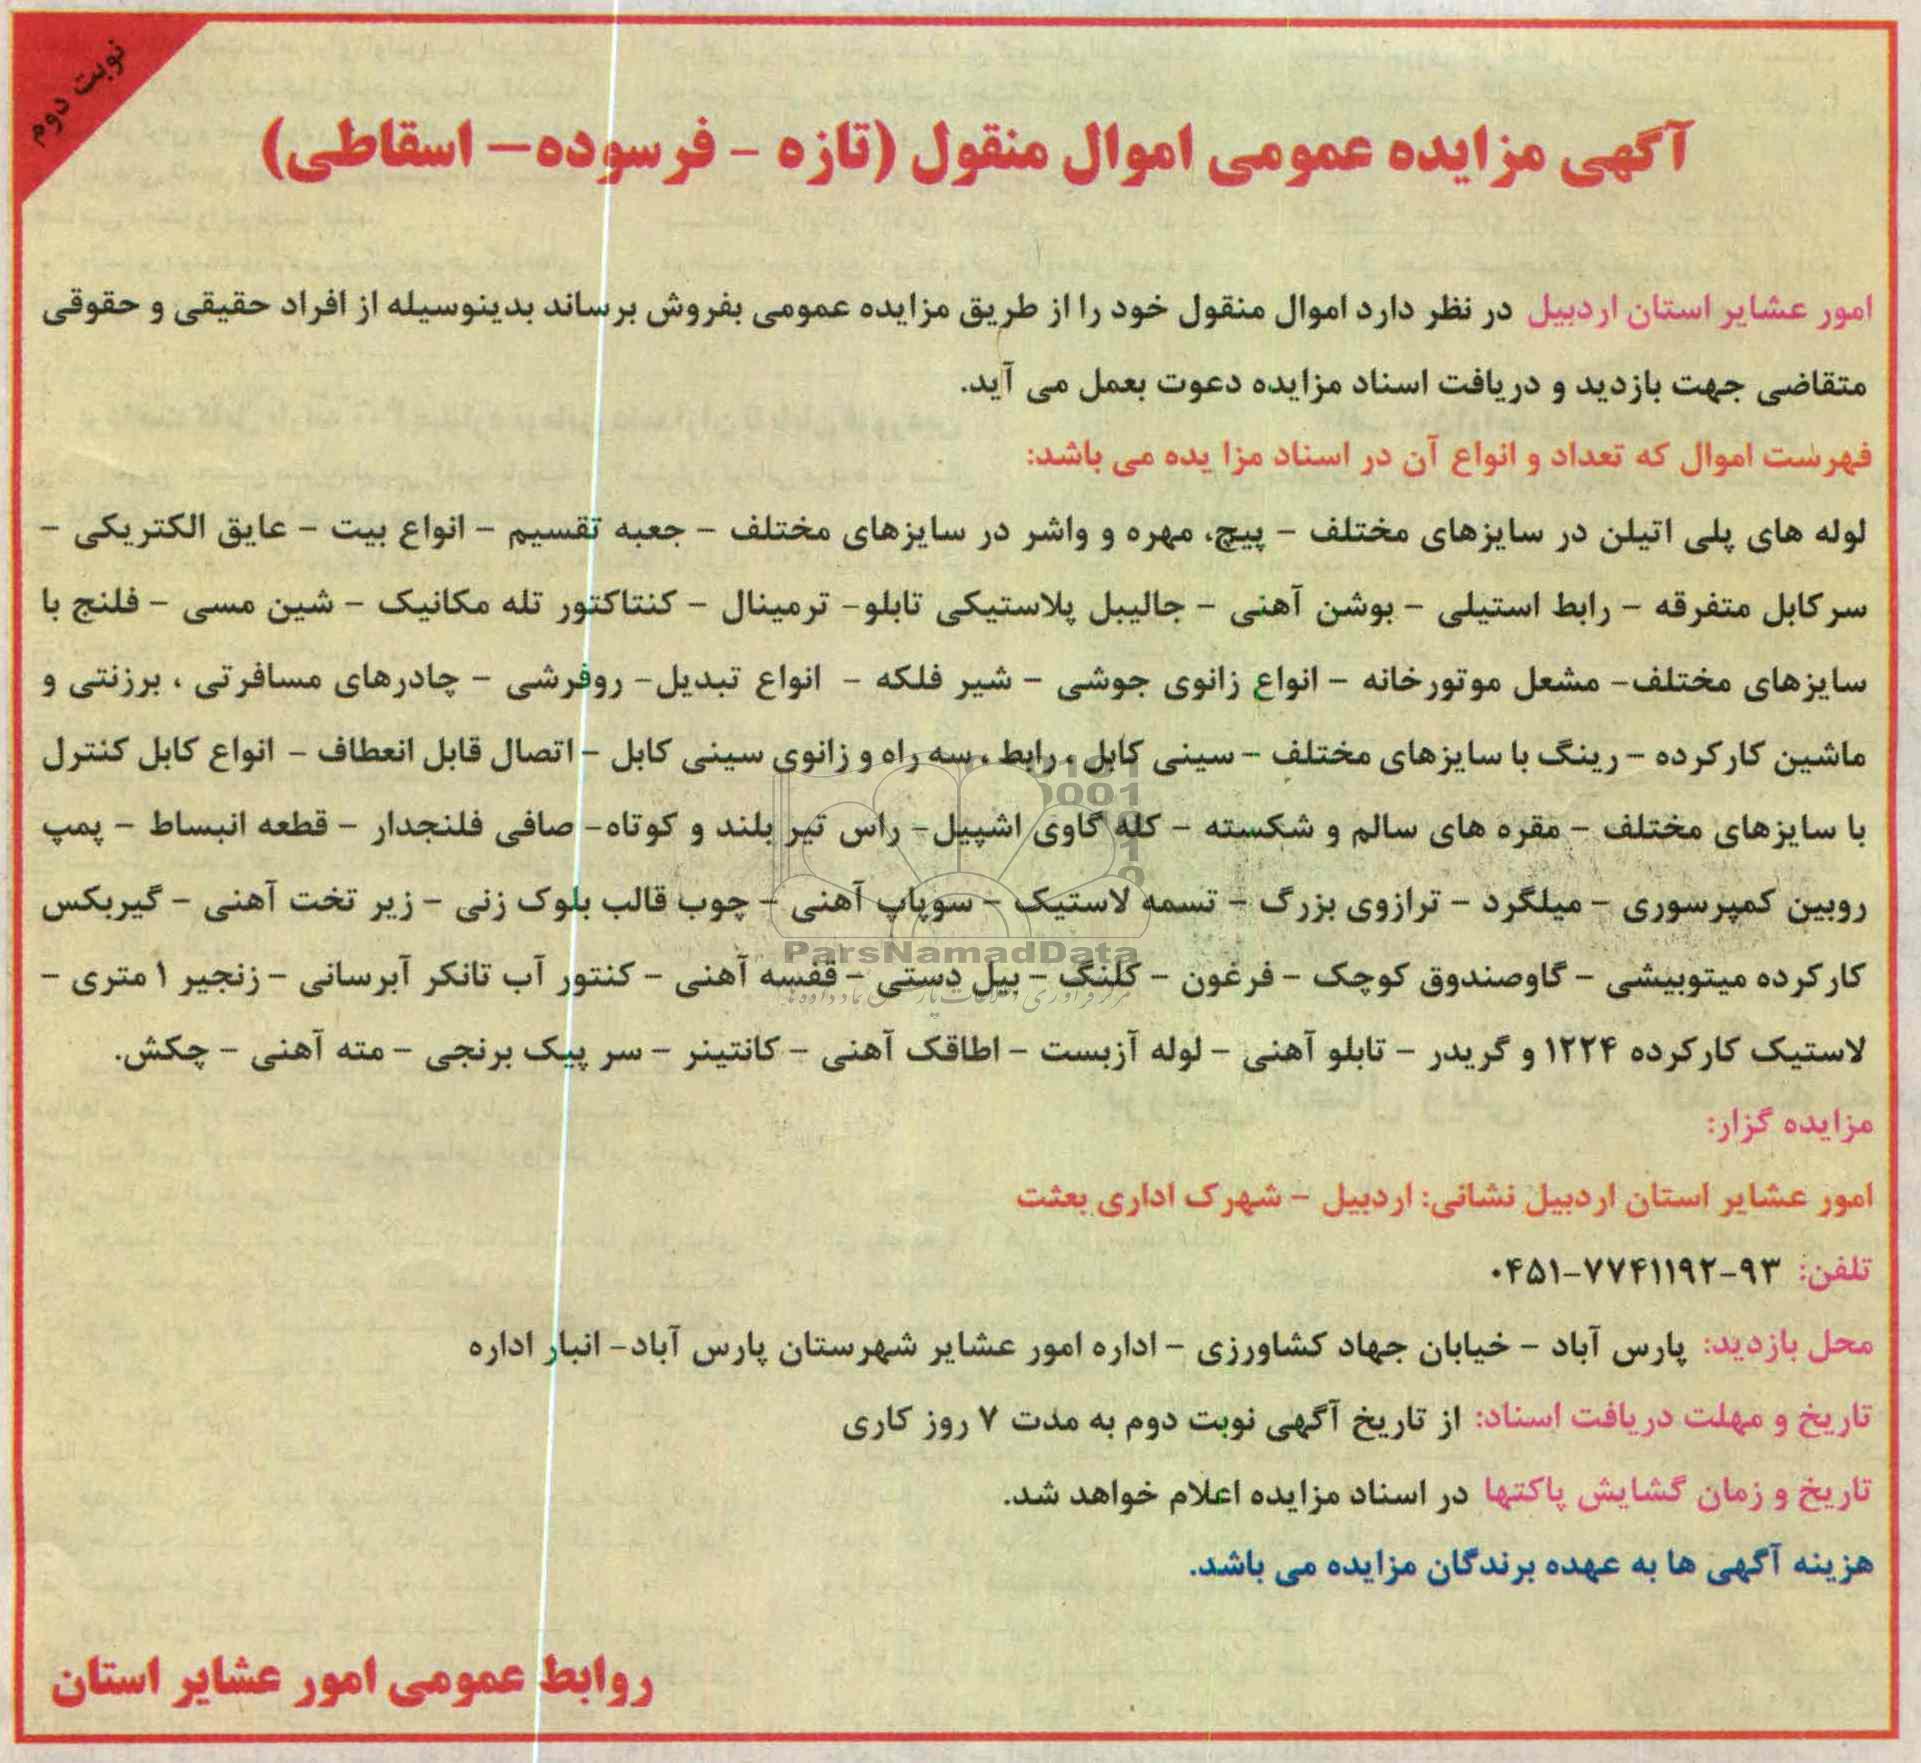 نوبت دوم
آگهی مزایده عمومی اموال منقول (تازه - فرسوده- اسقاطی)
امور عشایر استان اردبیل در نظر دارد اموال منقول خود را از طریق مزایده عمومی بفروش برساند بدینوسیله از افراد حقیقی و حقوقی
متقاضی جهت بازدید و دریافت اسناد مزایده دعوت بعمل می آید.
فهرست اموال که تعداد و انواع آن در اسناد مزا یده می باشد:
لوله های پلی اتیلن در سایزهای مختلف - پیچ، مهره و واشر در سایزهای مختلف - جعبه تقسیم - انواع بیت - عایق الکتریکی -
سرکابل متفرقه - رابط استیلی - بوشن آهنی - جالیبل پلاستیکی تابلو- ترمینال - کنتاکتور تله مکانیک - شین مسی - فلنج با
سایزهای مختلف- مشعل موتورخانه - انواع زانوی جوشی - شیر فلکه - انواع تبدیل- روفرشی - چادرهای مسافرتی ، برزنتی و
ماشین کارکرده - رینگ با سایزهای مختلف - سینی کابل ، رابط ، سه راه و زانوی سینی کابل - اتصال قابل انعطاف - انواع کابل کنترل
با سایزهای مختلف - مقره های سالم و شکسته - کله گاوی اشپیل- راس تیر بلند و کوتاه- صافی فلنجدار - قطعه انبساط - پمپ
روبین کمپرسوری - میلگرد - ترازوی بزرگ - تسمه لاستیک - سوپاپ آهنی - چوب قالب بلوک زنی - زیر تخت آهنی - گیربکس
کارکرده میتوبیشی - گاوصندوق کوچک - فرغون - کلنگ - بیل دستی - قفسه آهنی - کنتور آب تانکر آبرسانی - زنجیر ۱ متری -
لاستیک کارکرده ۱۲۲۴ و گریدر - تابلو آهنی - لوله آزبست - اطاقک آهنی - کانتینر - سر پیک برنجی - مته آهنی - چکش.
مزایده گزار:
امور عشایر استان اردبیل نشانی: اردبیل - شهرک اداری بعثت
تلفن: ۹۳-۷۷۴۱۱۹۲-۰۴۵۱
محل بازدید: پارس آباد - خیابان جهاد کشاورزی - اداره امور عشایر شهرستان پارس آباد- انبار اداره
تاریخ و مهلت دریافت اسناد: از تاریخ آگهی نوبت دوم به مدت ۷ روز کاری
تاریخ و زمان گشایش پاکتها در اسناد مزایده اعلام خواهد شد.
هزینه آگهی ها به عهده برندگان مزایده می باشد.
روابط عمومی امور عشایر استان
ParsNamadData